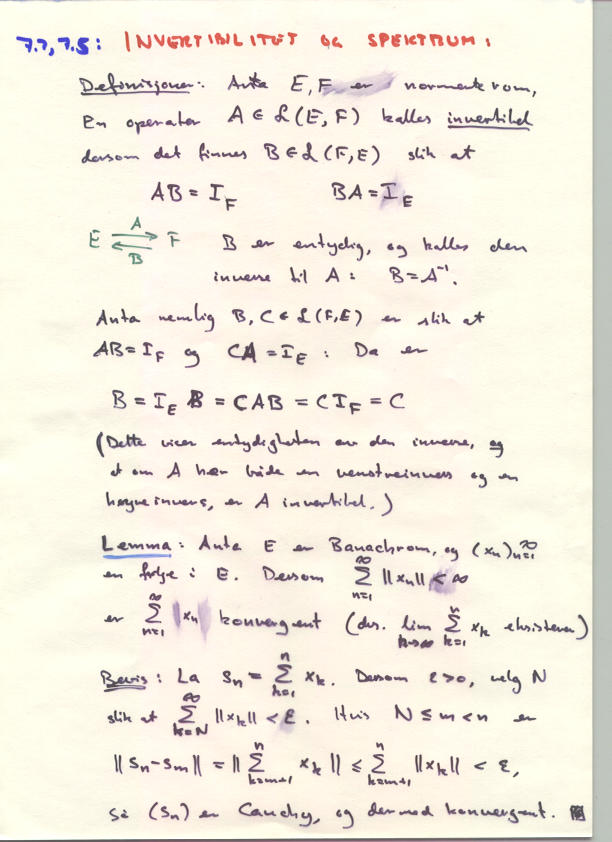 7.7, 7.5: INVERTIBILITET OG SPEKTRUM:
Definisjoner: Anta E, F er normerte rom,
En operator A ∈ L(E, F) kalles invertibel
dersom det finnes B ∈ L(F,E) slik at
AB = I_F BA = I_E
E A F B B er entydig, og kalles den
inverse til A: B = A⁻¹.
Anta nemlig B, C ∈ L(F,E) er slik at
AB = I_F og CA = I_E : Da er
B = I_E B = CAB = C I_F = C
(Dette viser entydigheten av den inverse, og
at om A har både en venstreinvers og en
høyreinvers, er A invertibel.)
Lemma: Anta E er Banachrom, og (x_n)_{n=1}^∞
en følge i E. Dersom ∑_{n=1}^∞ ||x_n|| < ∞
er ∑_{n=1}^∞ x_n konvergent (dvs. lim_{n→∞} ∑_{k=1}^n x_k eksisterer)
Bevis: La s_n = ∑_{k=1}^n x_k. Dersom ε>0, velg N
slik at ∑_{k=N}^∞ ||x_k|| < ε. Hvis N ≤ m < n er
||s_n - s_m|| = ||∑_{k=m+1}^n x_k|| ≤ ∑_{k=m+1}^n ||x_k|| < ε,
så (s_n) er Cauchy, og dermed konvergent.